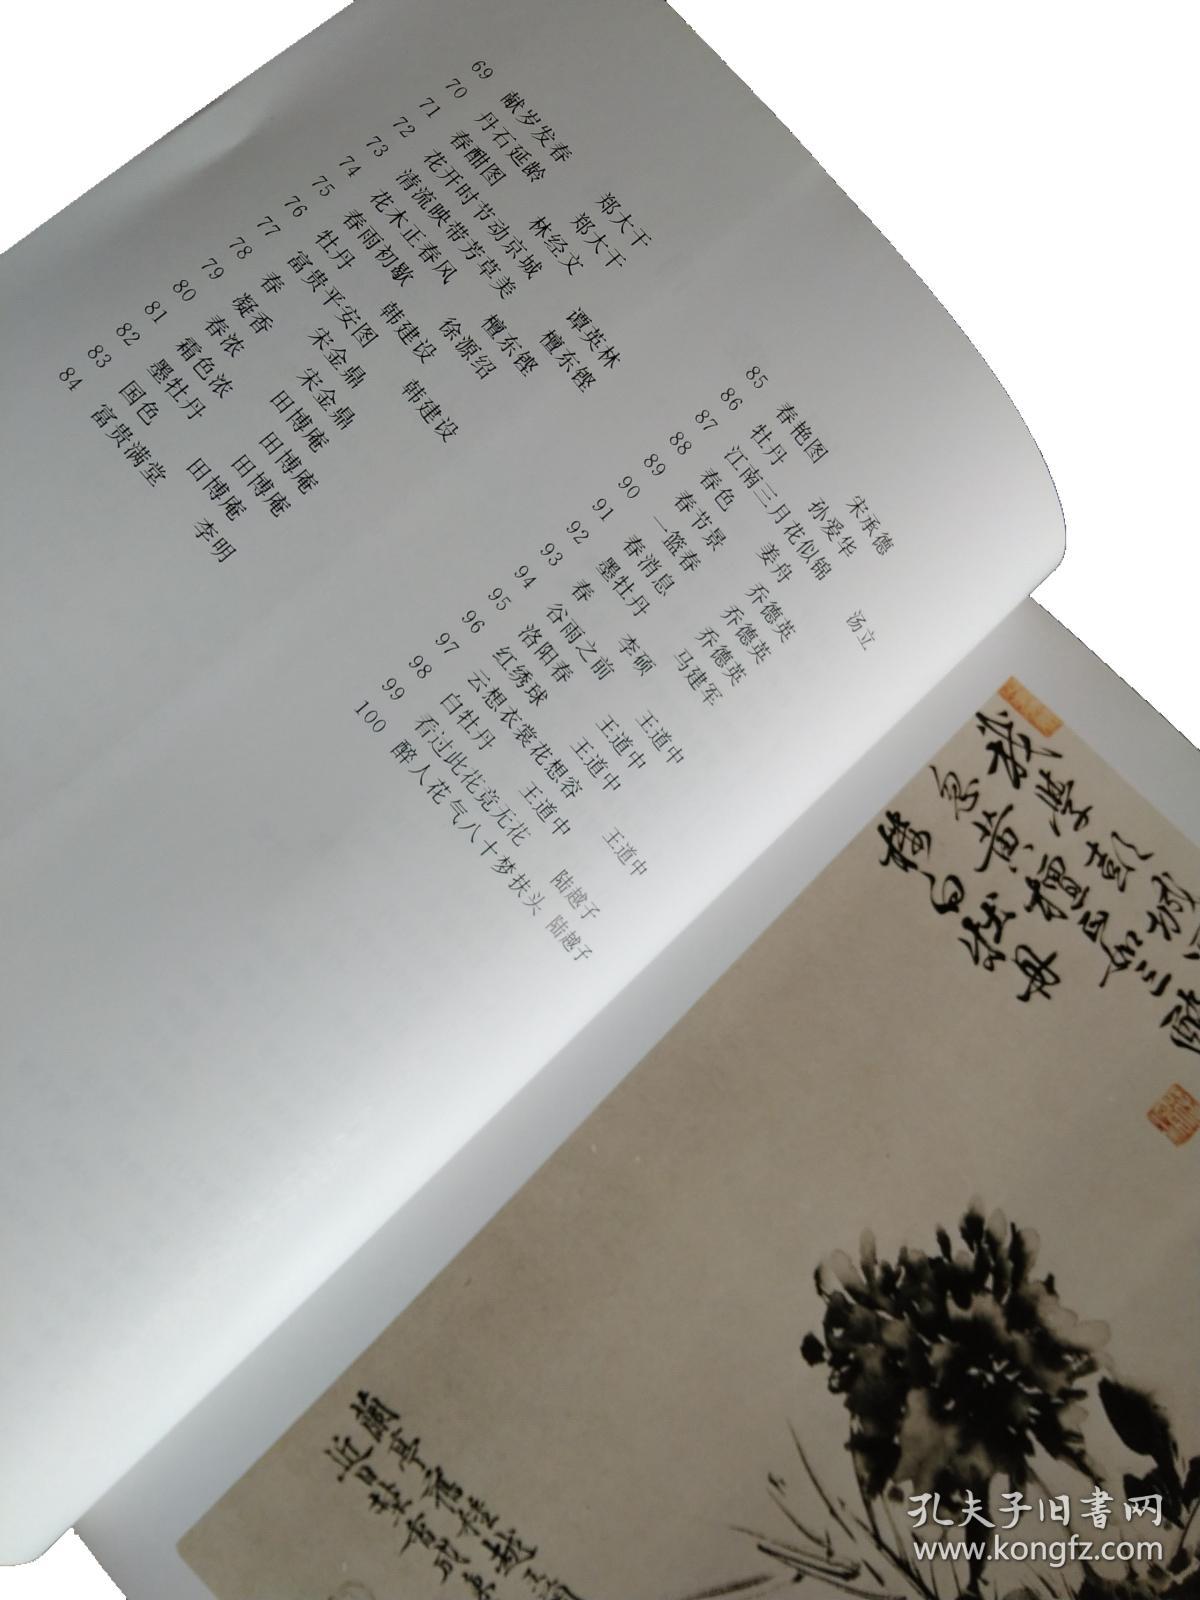 69 献岁发春 郑大干
70 丹石延龄 郑大干
71 春酣图 林经文
72 花开时节动京城 谭英林
73 清流映带芳草美 檀东铿
74 花木正春风 檀东铿
75 春雨初歇 徐源绍
76 牡丹 韩建设
77 富贵平安图 韩建设
78 春 宋金鼎
79 凝香 宋金鼎
80 春浓 田博庵
81 霜色浓 田博庵
82 墨牡丹 田博庵
83 国色 田博庵
84 富贵满堂 李明
85 春艳图 宋承德
86 牡丹 孙爱华
87 江南三月花似锦 汤立
88 春色 姜舟
89 春节景 乔德英
90 一篮春 乔德英
91 春消息 乔德英
92 墨牡丹 马建军
93 春 李硕
94 谷雨之前 王道中
95 洛阳春 王道中
96 红绣球 王道中
97 云想衣裳花想容 王道中
98 白牡丹 王道中
99 看过此花竟无花 陆越子
100 醉人花气八十梦扶头 陆越子
孔夫子旧书网
www.kongfz.com